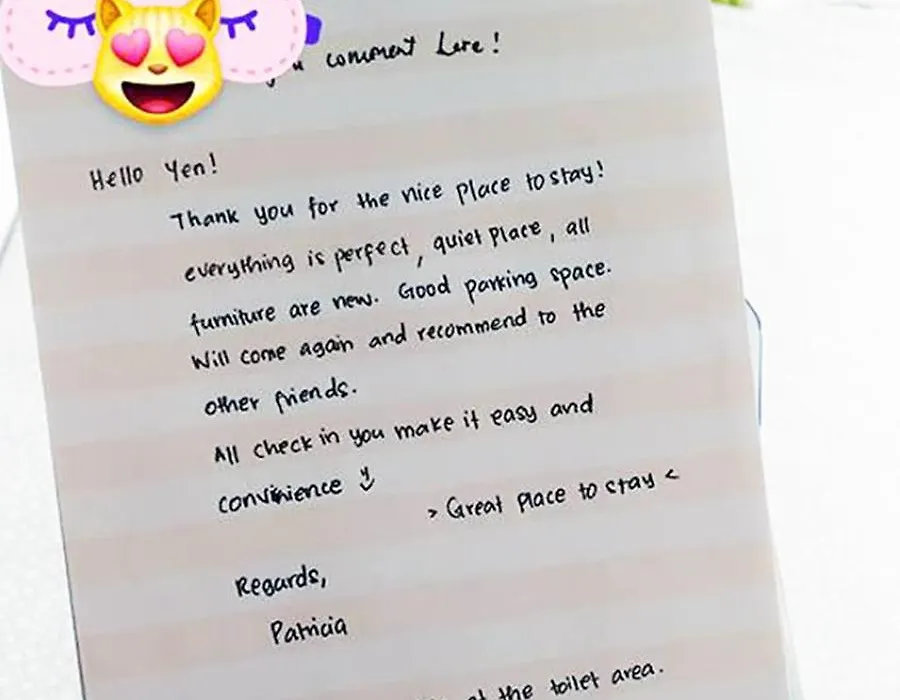 comment Here!
Hello Yen!
Thank you for the nice place to stay!
everything is perfect, quiet place, all
furniture are new. Good parking space.
Will come again and recommend to the
other friends.
All check in you make it easy and
convinience
> Great place to stay <
Regards,
Patricia
at the toilet area.